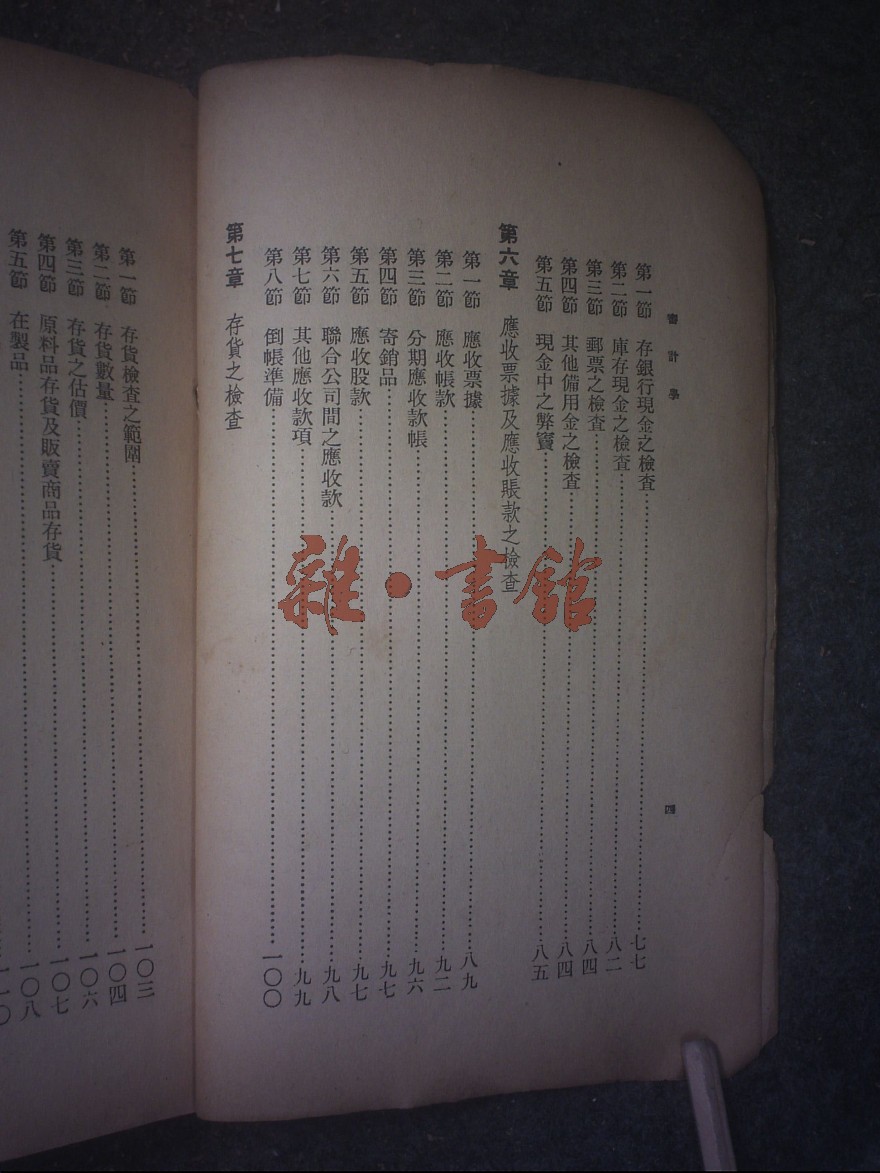 審計學
四
第一節 存銀行現金之檢查 七七
第二節 庫存現金之檢查 八二
第三節 郵票之檢查 八四
第四節 其他備用金之檢查 八四
第五節 現金中之弊竇 八五
第六章 應收票據及應收賬款之檢查
第一節 應收票據 八九
第二節 應收帳款 九二
第三節 分期應收款帳 九六
第四節 寄銷品 九七
第五節 應收股款 九七
第六節 聯合公司間之應收款 九八
第七節 其他應收款項 九九
第八節 倒帳準備 一〇〇
第七章 存貨之檢查
第一節 存貨檢查之範圍 一〇三
第二節 存貨數量 一〇四
第三節 存貨之估價 一〇六
第四節 原料品存貨及販賣商品存貨 一〇七
第五節 在製品 一〇八
雜·書館